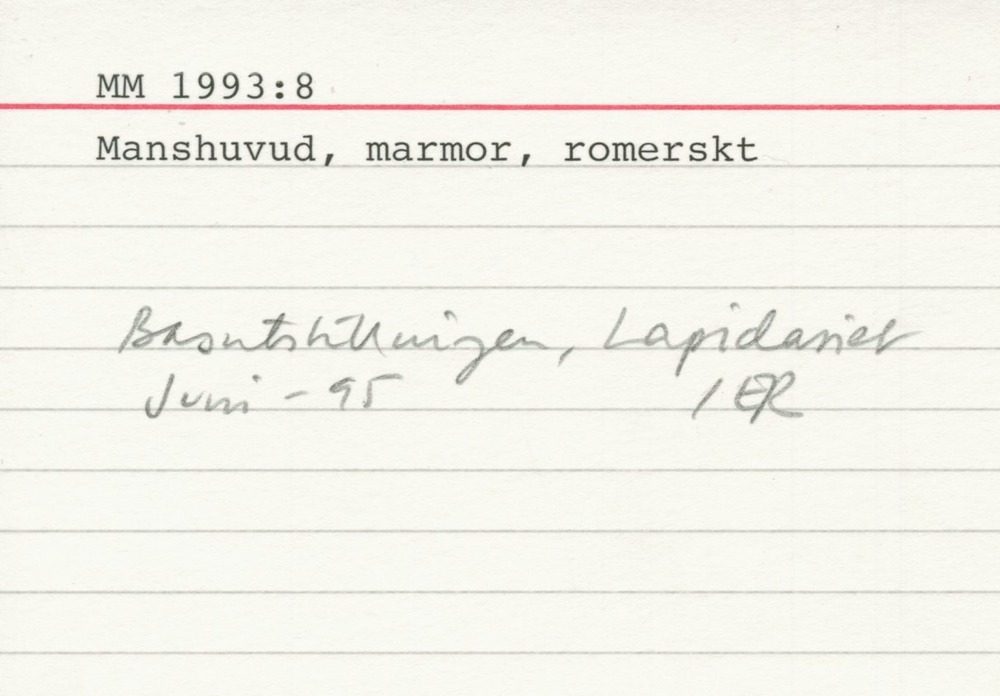 MM 1993:8
Manshuvud, marmor, romerskt
Basutställningen, Lapidariet
Juni - 95 / ER